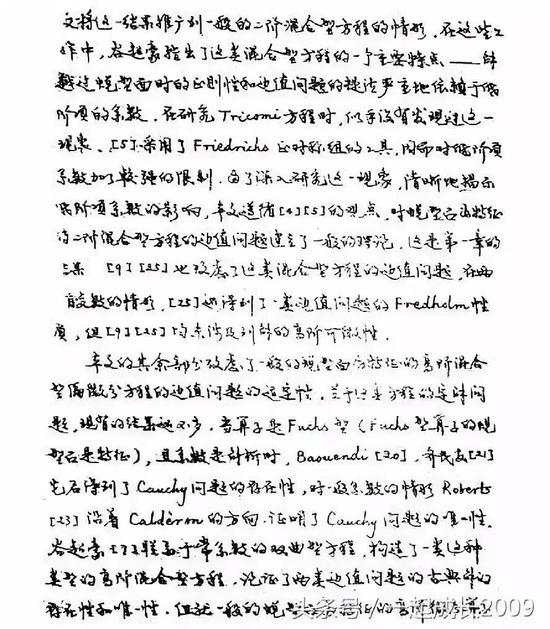 文将这一结果推广到一般的二阶混合型方程的情形。在这些工
作中,谷超豪指出了这类混合型方程的一个主要特点——解
越过蜕型面时的正则性和边值问题的提法严重地依赖于低
阶项的系数。在研究Tricomi方程时,似乎没有发现过这一
现象。[5]采用了Friedrichs正对称组的工具,同时对低阶项
系数加了较强的限制。为了深入研究这一现象,清晰地揭示
低阶项系数的影响,本文遵循[4][5]的观点,对蜕型面为特征
的二阶混合型方程的边值问题建立了一般的理论。这是第一章的
[9][25]也考虑了这类混合型方程的边值问题,在两
自变数的情形,[25]还得到了一类边值问题的Fredholm性
质,但[9][25]均未涉及到解的高阶可微性。
本文的其余部分考虑了一般的蜕型面为特征的高阶混合
型偏微分方程的边值问题的适定性。关于这类方程的定解问
题,现有的结果还不多。当算子是Fuchs型(Fuchs型算子的蜕
型面是特征),且系数是解析时,Baouendi[20],齐民友[21]
先后得到了Cauchy问题的存在性,对一般系数的情形Roberts
[23]沿着Calderon的方向,证明了Cauchy问题的唯一性。
谷超豪[7]基于常系数的双曲型方程,构造了一类这种
类型的高阶混合型方程,论证了两类边值问题的古典解的
存在性和唯一性。但就一般的蜕型
头条号/一起威汉2009